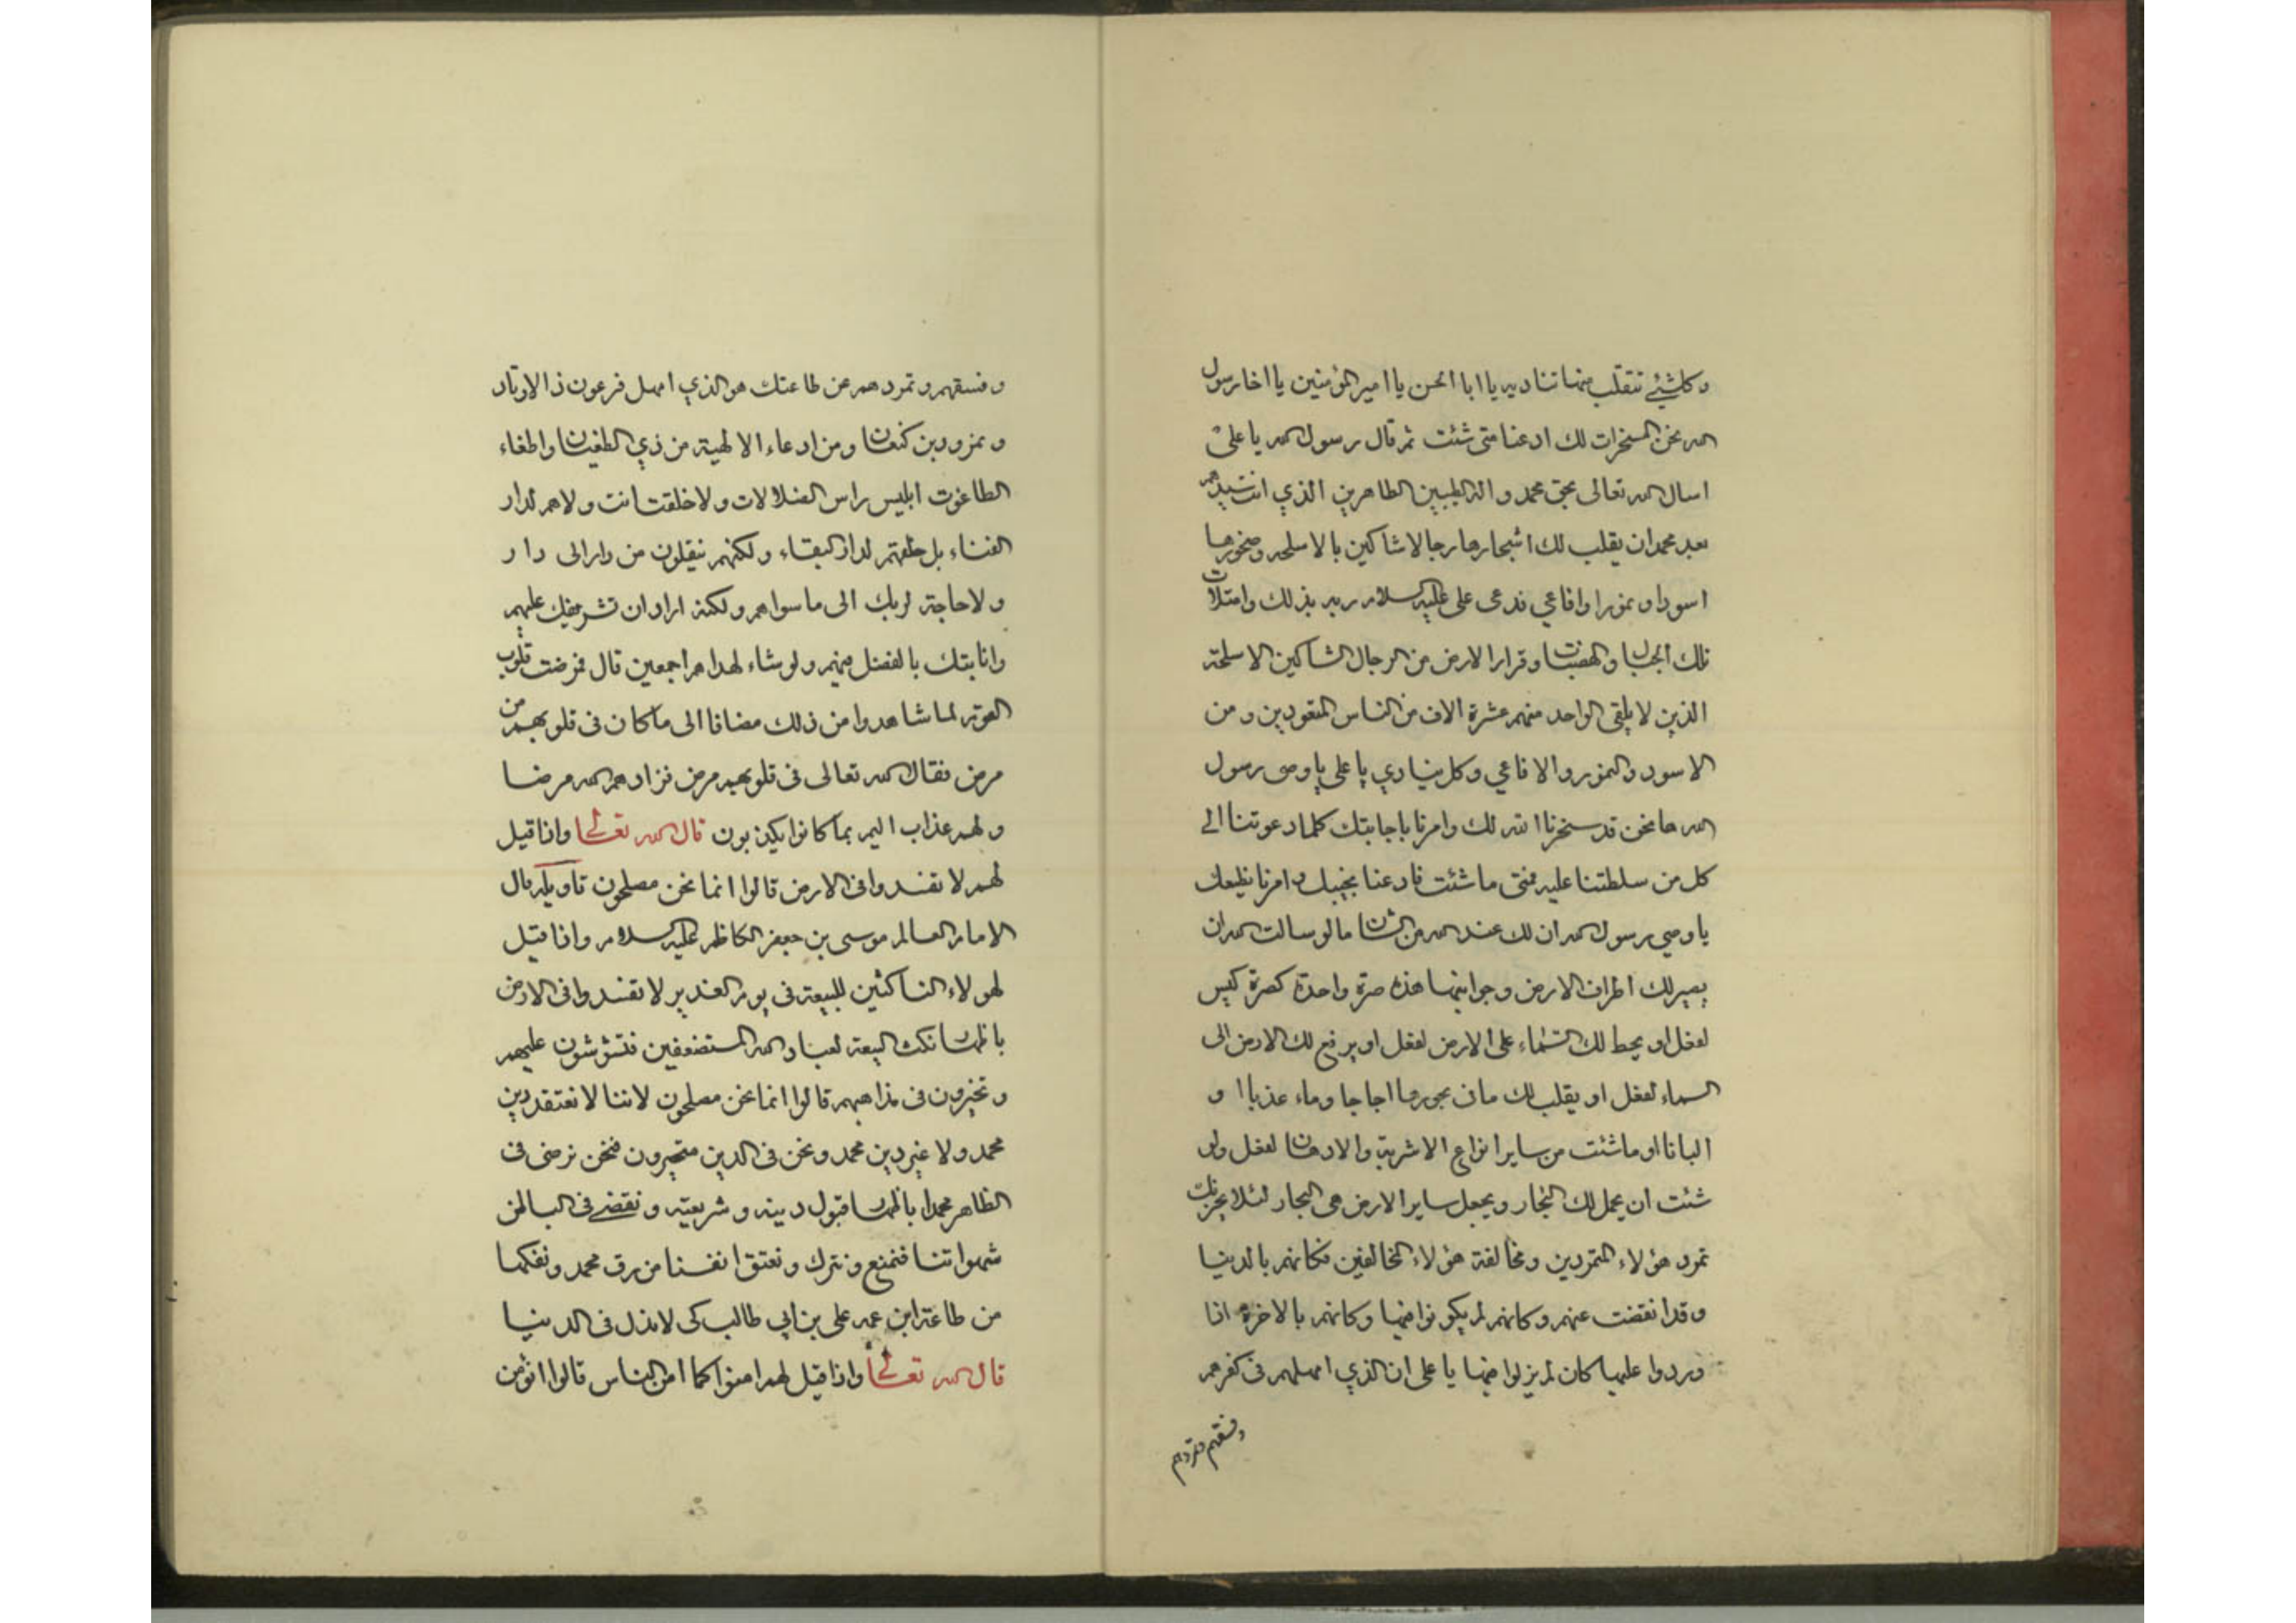 وكلشيئ تنقلب منها تناديه يا ابا الحسن يا امير المؤمنين يا اخا رسول
الله نحن المسخرات لك ادعنا متى شئت ثم قال رسول الله يا علىّ
اسال الله تعالى بحق محمد واله الطيبين الطاهرين الذي انت سيدهم
بعد محمد ان يقلب لك اشجارها رجالا شاكين بالاسلحه وصخورها
اسودا ونمورا وافاعي فدعى على عليه السلام ربه بذلك وامتلات
تلك الجبال والهضبات وقرار الارض من الرجال الشاكين الاسلحة
الذين لا يلقى الواحد منهم عشرة الاف من الناس المعهودين ومن
الاسود والنمور والافاعي وكل ينادي يا على يا وصى رسول
الله ها نحن قد سخرنا الله لك وامرنا باجابتك كلما دعوتنا الى
كل من سلطتنا عليه فمتى ما شئت فادعنا نجيبك وامرنا نطيعك
يا وصي رسول الله ان لك عند الله من الشان ما لو سالت الله ان
يصير لك اطراف الارض وجوانبها هذه صرة واحدة كصرة كيس
لفعل او يحط لك السماء على الارض لفعل او يرفع لك الارض الى
السماء لفعل او يقلب لك ما فى بحورها اجاجا وماء عذبا ا و
البانا او ما شئت من ساير انواع الاشربة والادهان لفعل ولو
شئت ان يجمل لك البحار ويجعل ساير الارض هى البحار لئلا يحزنك
تمرد هؤلاء المتمردين ومخالفة هؤلاء المخالفين فكانهم بالدنيا
وقد انقضت عنهم وكانهم لم يكونوا فيها وكانهم بالاخرة اذا
وردوا عليها كان لم يزلوا فيها يا على ان الذي امهلهم فى كفرهم
وفسقهم وتمردهم
وفسقهم وتمردهم عن طاعتك هو الذي امهل فرعون ذا الاوتاد
ونمرود بن كنعان ومن ادعاء الالهية من ذي الطغيان واطغاء
الطاغوت ابليس راس الضلالات ولا خلقت انت ولا هم لدار
الفناء بل خلقتم لدار البقاء ولكنهم ينقلون من دار الى دار
ولا حاجة لربك الى ما سواهم ولكنه اراد ان تشريفك عليهم
وانابتك بالفضل منهم ولو شاء لهداهم اجمعين قال فمرضت قلوب
القوم لما شاهدوا من ذلك مضافا الى ما كان فى قلوبهم من
مرض فقال الله تعالى فى قلوبهم مرض فزادهم الله مرضا
ولهم عذاب اليم بما كانوا يكذبون قال الله تعالى واذا قيل
لهم لا تفسدوا فى الارض قالوا انما نحن مصلحون تاويله قال
الامام العالم موسى بن جعفر الكاظم عليه السلام واذا قيل
لهولاء الناكثين للبيعة فى يوم الغدير لا تفسدوا فى الارض
باظهار نكث البيعة لعباد الله المستضعفين فتشوشون عليهم
وتحيرون فى مذاهبهم قالوا انما نحن مصلحون لاننا لا نعتقد دين
محمد ولا غير دين محمد ونحن فى الدين متحيرون فنحن نرضى فى
الظاهر محمدا باظهار قبول دينه وشريعته ونقضى فى الباطن
شهواتنا فنمنع ونترك ونعتق انفسنا من رق محمد ونفكها
من طاعة ابن عمه على بن ابي طالب كى لا نذل فى الدنيا
قال الله تعالى واذا قيل لهم امنوا كما امن الناس قالوا انؤمن